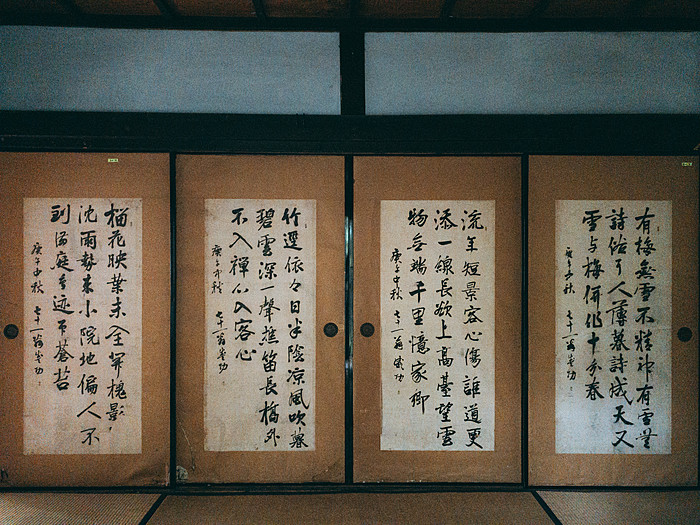 有梅無雪不精神有雪無
詩俗了人薄暮詩成天又
雪与梅併作十分春
庚子中秋 七十一翁 功
流年短景客心傷誰道更
添一線長欲上高臺望雲
物無端千里憶家郷
庚子中秋 七十一翁 功
竹逕依々日半陰涼風吹暮
碧雲深一聲樵笛長橋外
不入禅心入客心
庚子中秋 七十一翁 功
榴花映葉未全開槐影
沈雨勢来小院地偏人不
到満庭鳥迹印蒼苔
庚子中秋 七十一翁 功